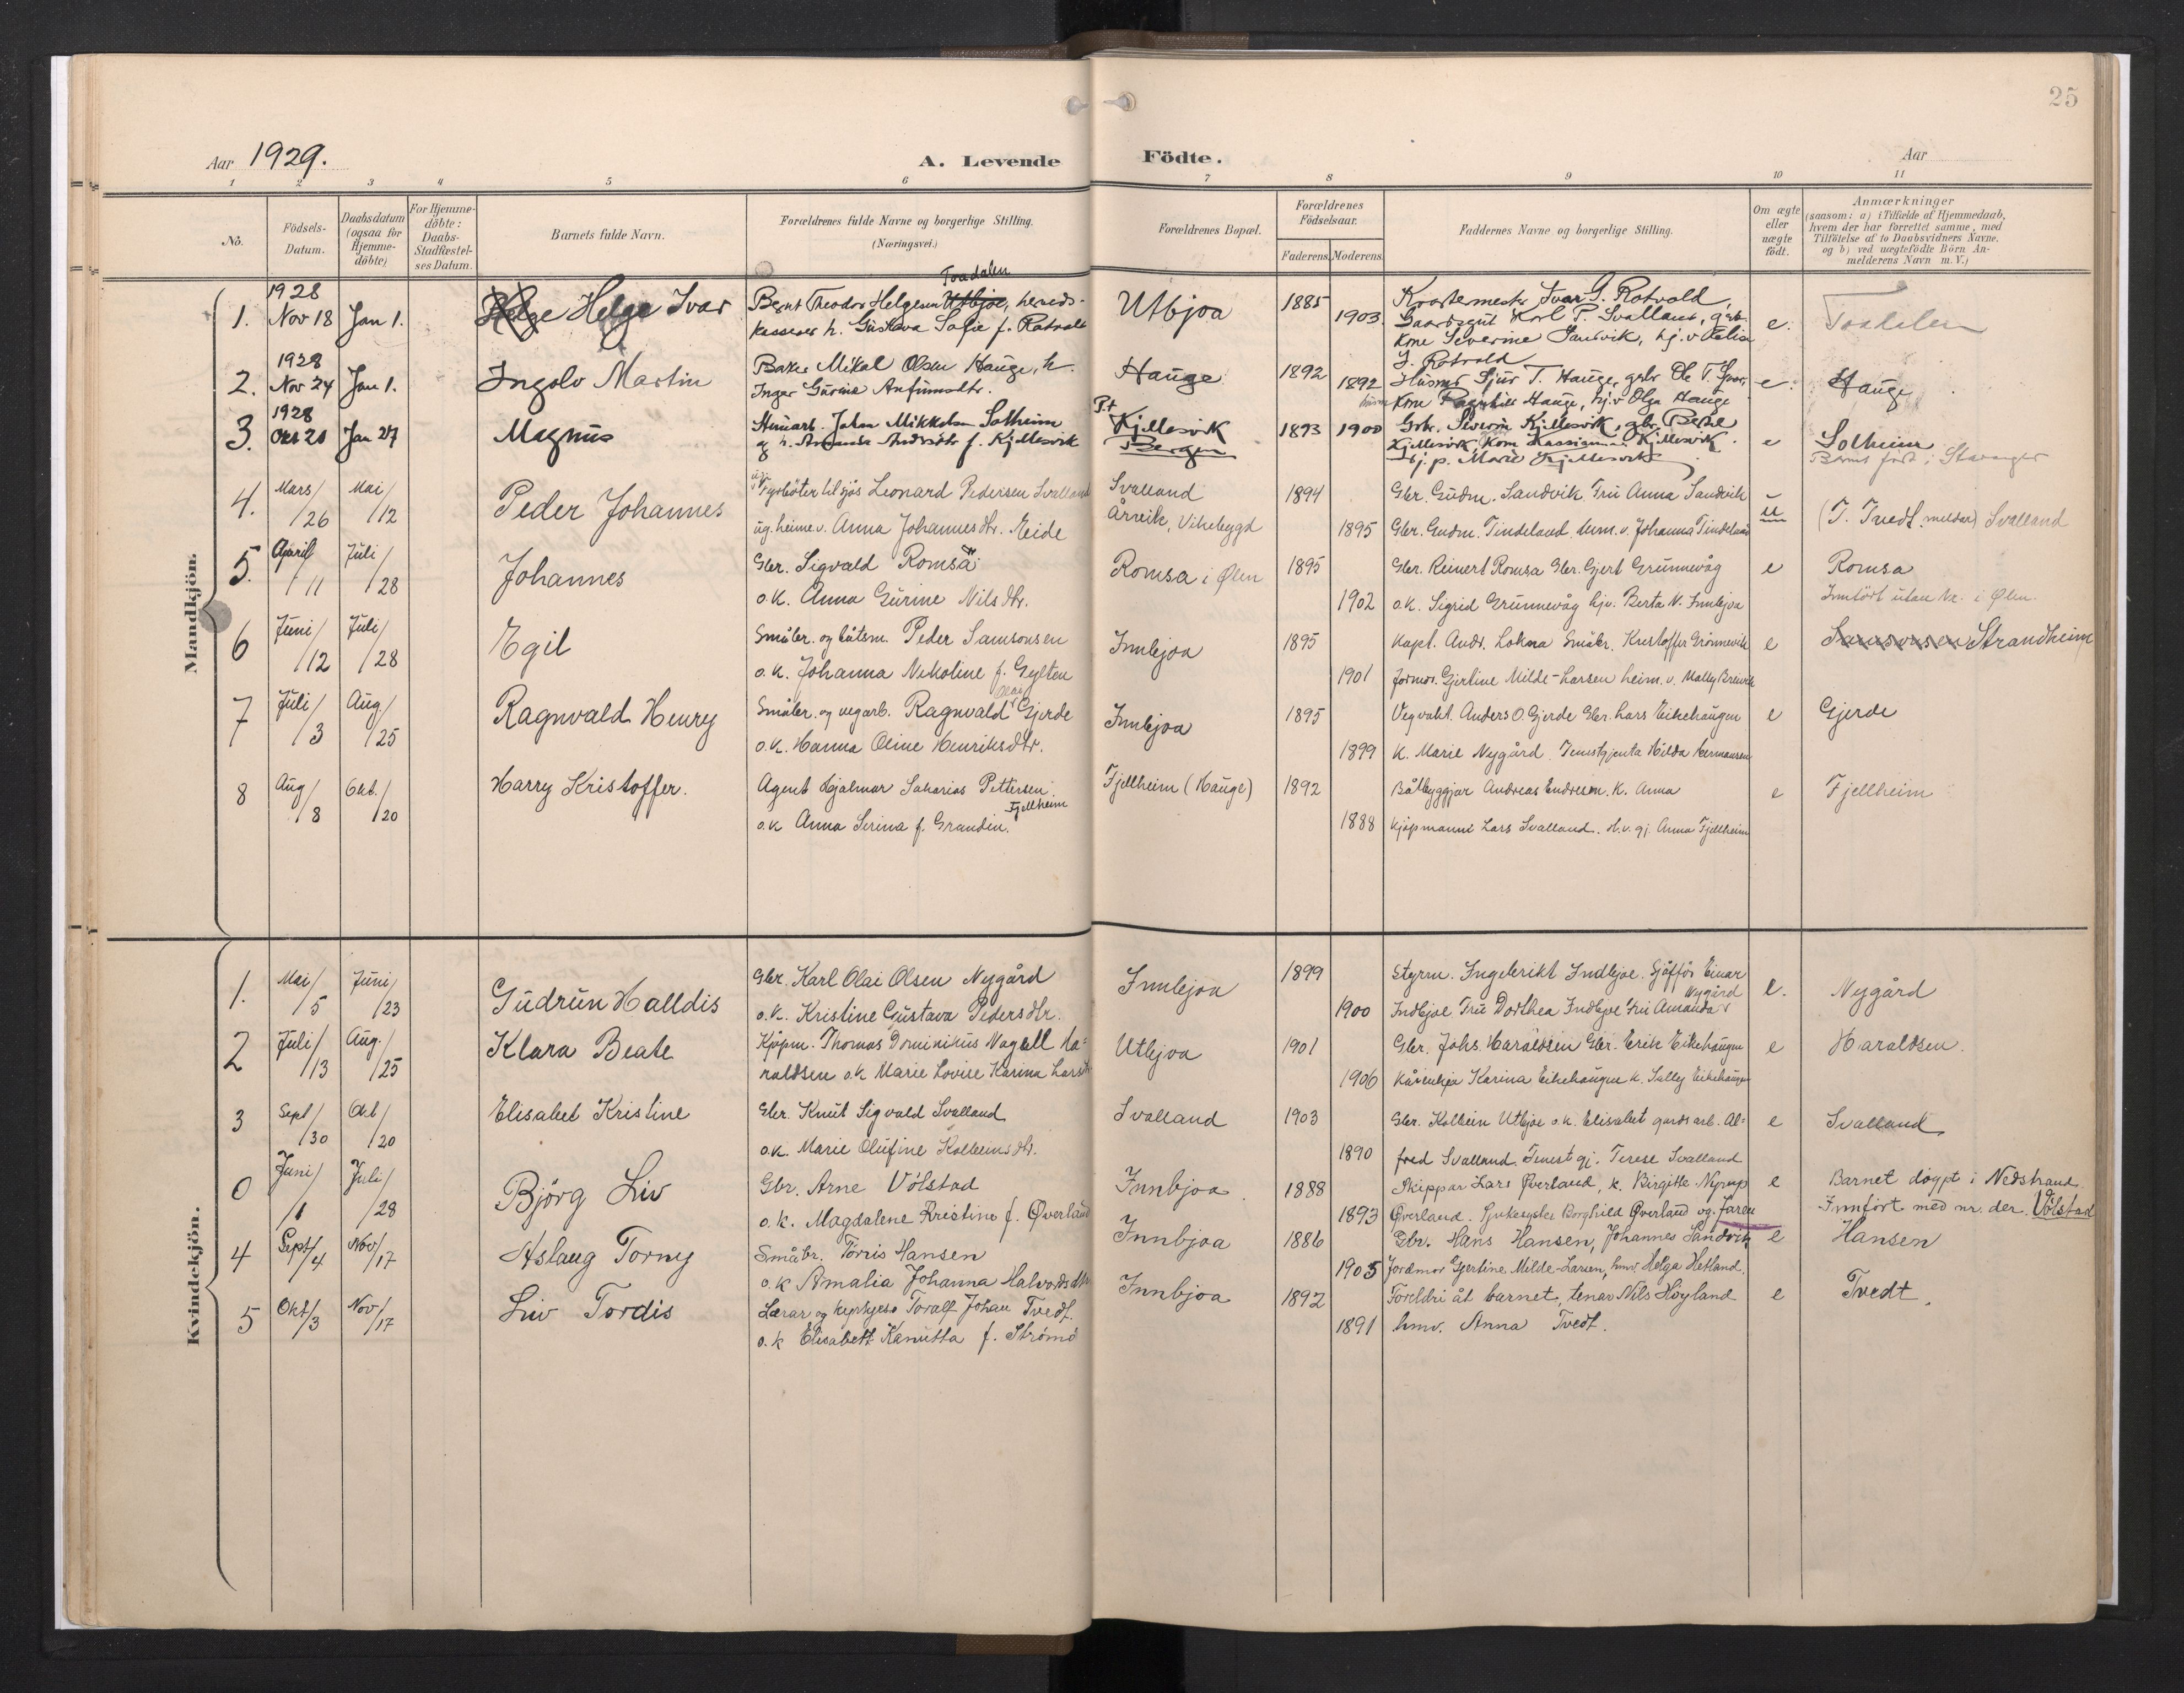 25
Aar 1929.
A. Levende Födte.
Aar
1 2 3 4 5 6 7 8 9 10 11
No.
Födsels-Datum.
Daabsdatum (ogsaa for Hjemme-döbte)
For Hjemme-döbte: Daabs-Stadfæstel-ses Datum.
Barnets fulde Navn.
Forældrenes fulde Navne og borgerlige Stilling. (Næringsvei.)
Forældrenes Bopæl.
Forældrenes Födselsaar.
Faderens. Moderens.
Faddernes Navne og borgerlige Stilling.
Om ægte eller uægte födt.
Anmærkninger (saasom: a) i Tilfælde af Hjemmedaab, hvem der har forrettet samme, med Tilföielse af to Daabsvidners Navne, og b) ved uægtefödte Börn Anmelderens Navn m. V.)
Mandkjön.
1. 1928 Nov 18 Jan 1. Helge Helge Ivar
Toadalen
Bernt Theodor Helgesen Utbjoe, hereds-
kasserer h. Gustava Sofie f. Rotvold
Utbjoa 1885 1903.
Kvartermester Ivar G. Rotvold,
Gaardsgut Karl P. Svalland, gbr.
Kone Severine Sandvik, hj.v.
G. Rotvold
e. Toadalen
2. 1928 Nov 24 Jan 1. Ingolv Martin
Baker Mikal Olsen Hauge, h.
Inger Gurine Anfinnsdtr.
Hauge 1892 1892
Husmr Sjur T. Hauge, gbr Ole T.
Kone Ragnhild Hauge, hj.v Olga Hauge
e. Hauge
3. 1928 Okt 20 Jan 27 Magnus
John Mikkelsen Solheim
og h. Amanda Andrsdtr f. Kjillesvik
P.t Kjillesvik
Bergen
1893 1900
Gbr. Severin Kjillesvik, gbr. Bertel
Kjillesvik, Kone Kjillesvik.
hj. p. Marie Kjillesvik
e Solheim
Barnet født i Stavanger
4. Mars/26 Mai/12 Peder Johannes
ug. Fyrböter tilsjös Leonard Pedersen Svalland
ug. heime v. Anna Johannesdtr. Eide
Svalland
Årvik, Vikebygd
1894 1895
Gbr. Gudm. Sandvik. Fru Anna Sandvik
Gbr. Gudm. Tindeland. hem. v. Johanna Tindeland
u
(T. Tvedt. meldar) Svalland
5. April/11 Juli/28 Johannes
Gbr. Sigvald Romsa
o.k. Anna Gurine Nilsdtr.
Romsa i Ølen 1895 1902
Gbr. Reinert Romsa Gbr. Gjert Grunnevåg
o.k. Sigrid Grunnevåg hjv. Berta N. Innbjoa
e Romsa
Innfört utan Nr. i Ølen.
6 Juni/12 Juli/28 Egil
Småbr. og båtsm. Peder Samsonsen
o.k. Johanna Nikoline f. Gylten
Innbjoa 1895 1901
Kapt. Andr. Lokna Småbr. Kristoffer Grönnevik
Jormor. Gjertine Milde-Larsen heim. v. Mally Breivik
e Samsonsen Strandheim
7 Juli/3 Aug./25 Ragnvald Henry
Olai
Småbr. og vegarb. Ragnvald Gjerde
o.k. Hanna Oline Henriksdtr.
Innbjoa 1895 1899
Vegvakt. Anders O. Gjerde Gbr. Lars Eikehaugen
k. Marie Nygård. Tenestgjenta Hilda Hermansen
e Gjerde
8 Aug/8 Okt./20 Harry Kristoffer.
Agent Hjalmar Sakarias Pettersen.
Fjellheim
o.k Anna Serina f. Grandin.
Fjellheim (Hauge) 1892 1888
Båtbyggjar Andreas Endresen. k. Anna
Kjöpmann Lars Svalland. H.v. gj. Anna Fjellheim
e Fjellheim
Kvindekjön.
1. Mai/5 Juni/23 Gudrun Halldis
Gbr. Karl Olai Olsen Nygård
o.k. Kristine Gustava Pedersdtr.
Innbjoa 1899 1900
Styrm. Ingebrikt Indbjoe. Sjåffør Einar
Nygård
Indbjoe Fru Dorthea Indbjoe Fru Amanda
e. Nygård
2 Juli/13 Aug./25 Klara Beate
Kjöpm. Thomas Dominikus Nagell Ha=
raldsen o.k Marie Lovise Karina Larsdtr
Utbjoa 1901 1906
Gbr. Johs. Haraldsen Gbr. Erik Eikehaugen
Kårenkja Karina Eikehaugen k. Sally Eikehaugen
e Haraldsen.
3 Sept/30 Okt/20 Elisabet Kristine
Gbr. Knut Sigvald Svalland
o.k. Marie Olufine Kolbeinsdtr.
Svalland 1903 1890
Gbr. Kolbein Utbjoe o.k. Elisabet gards arb. Al=
fred Svalland. Tenest gj. Terese Svalland
e Svalland
0 Juni/1 Juli/28 Björg Liv
Gbr. Arne Völstad
o.k. Magdalene Kristine f. Øverland
Innbjoa. 1888 1893
Skippar Lars Øverland, k. Birgitte Nyrup
Øverland. Sjukesyster Borghild Øverland og. faren
e Barnet döypt i Nedstrand.
Innfört med nr. der. Völstad
4 Sept/4 Nov/17 Aslaug Torny
Småbr. Törris Hansen
o.k Amalia Johanna Halvordsdtr
Innbjoa 1886 1905
Gbr. Hans Hansen, Johannes Sandvik
Jordmor Gjertine Milde-Larsen, hmv. Helga Hetland.
e Hansen
5 Okt/3 Nov/17 Liv Tordis
Lærar og kyrkjeso Toralf Johan Tvedt.
o.k Elisabett Kanutta f. Strömö
Innbjoa 1892 1891
Foreldri åt barnet, lerar Nils Höyland
hmv. Anna Tvedt.
e Tvedt.